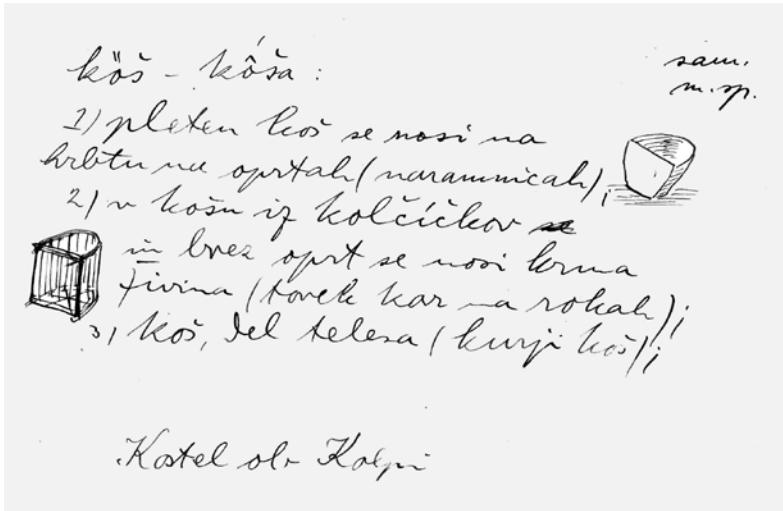 kȍš - kȏ́ša :
sam.
m. sp.
1) pleten koš se nosi na
hrbtu na oprtah (naramnicah);
2) v košu iz kolčičkov
in brez oprt se nosi krma
živina (tovek kar na rokah);
3) koš, del telesa (kurji koš);
Kostel ob Kolpi